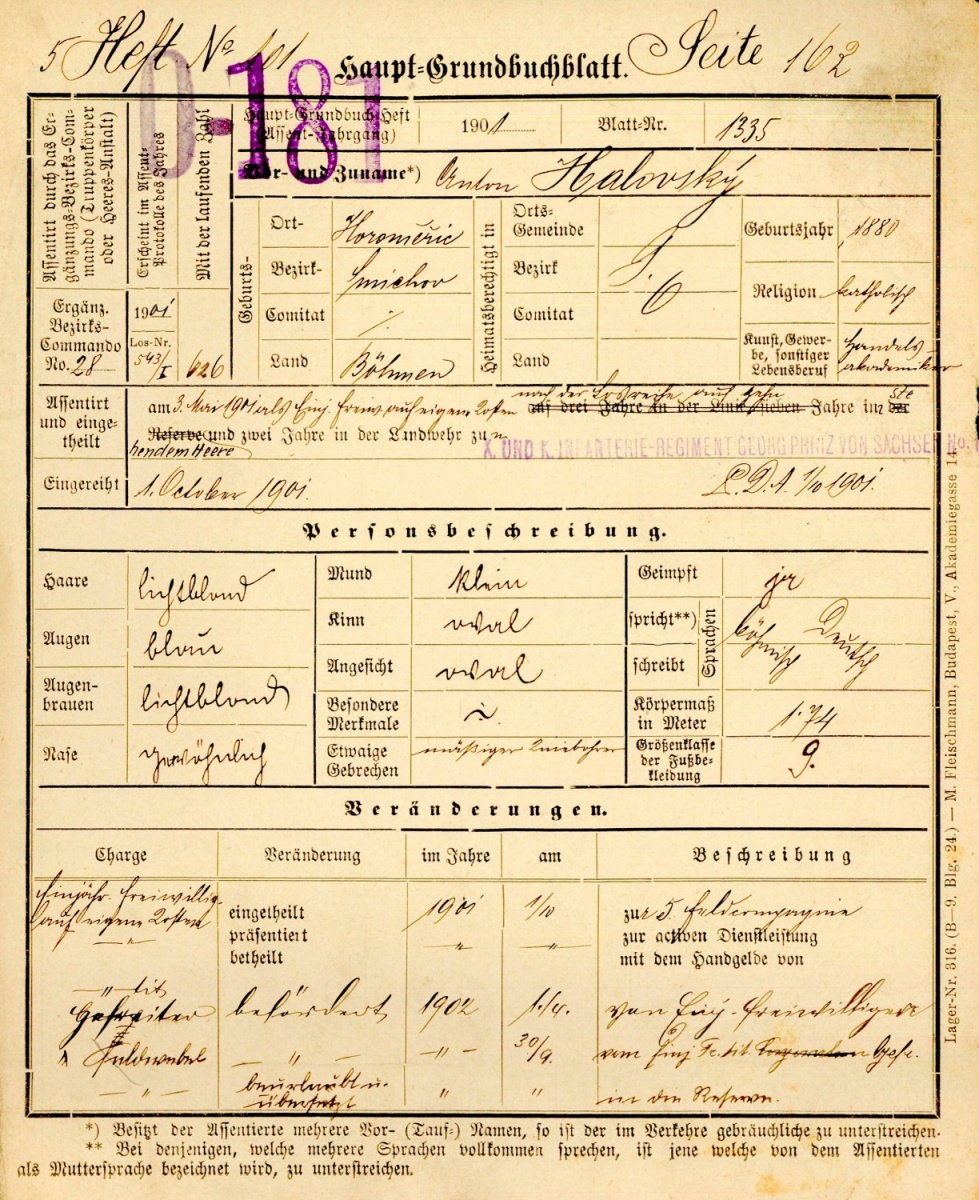 5 Heft No 101 Seite 162
0-181
Haupt-Grundbuchblatt.
Assentirt durch das Er-
gänzungs-Bezirks-Com-
mando (Truppenkörper
oder Heeres-Anstalt)
Erscheint im Assent-
Protokolle des Jahres
Mit der laufenden Zahl
Haupt-Grundbuch-Heft
(Assent-Jahrgang)
1901
Blatt-Nr. 1335
Vor- und Zuname*) Anton Halovský
Geburts-
Ort- Horoměřic
Bezirk- Smichov
Comitat ·/·
Land Böhmen
Heimatsberechtigt in
Orts-
Gemeinde
Bezirk
Comitat
Land
Geburtsjahr 1880
Religion katholisch
Kunst, Gewer-
be, sonstiger
Lebensberuf
Handels
akademiker
Ergänz.
Bezirks-
Commando
No. 28
1901
Los-Nr.
543/I
626
Assentirt
und einge-
theilt
nach der Losreihe auf zehn
am 3. Mai 1901 als Einj. Freiw. auf eigene Kosten auf drei Jahre in der Linie sieben Jahre in der
Reserve und zwei Jahre in der Landwehr zum
K. UND K. INFANTERIE-REGIMENT GEORG PRINZ VON SACHSEN No.
Eingereiht 1. October 1901. 1/10 1901.
Personsbeschreibung.
Haare lichtblond
Augen blau
Augen-
brauen lichtblond
Nase gewöhnlich
Mund klein
Kinn oval
Angesicht oval
Besondere
Merkmale
Etwaige
Gebrechen mäßiger Kniebohrer
Geimpft ja
spricht**)
schreibt
Sprachen
böhmisch Deutsch
Körpermaß
in Meter 1·74
Größenklasse
der Fußbe-
kleidung 9.
Veränderungen.
Charge Veränderung im Jahre am Beschreibung
Einjähr. Freiwillig.
auf eigene Kosten
eingetheilt 1901 1/10 zur 5. Feldcompagnie
präsentiert " " zur activen Dienstleistung
betheilt mit dem Handgelde von
" tit
Gefreiter befördert 1902 1./4. vom Einj. Freiwilligen
" Feldwebel " " 30/9. vom Einj. Fr. tit Corporalen Gefr.
" beurlaubt u.
übersetzt " " in die Reserve.
*) Besitzt der Assentierte mehrere Vor- (Tauf-) Namen, so ist der im Verkehre gebräuchliche zu unterstreichen.
** Bei denjenigen, welche mehrere Sprachen vollkommen sprechen, ist jene welche von dem Assentierten
als Muttersprache bezeichnet wird, zu unterstreichen.
Lager-Nr. 316. (B—9. Blg. 24.) — M. Fleischmann, Budapest, V., Akademiegasse 14.